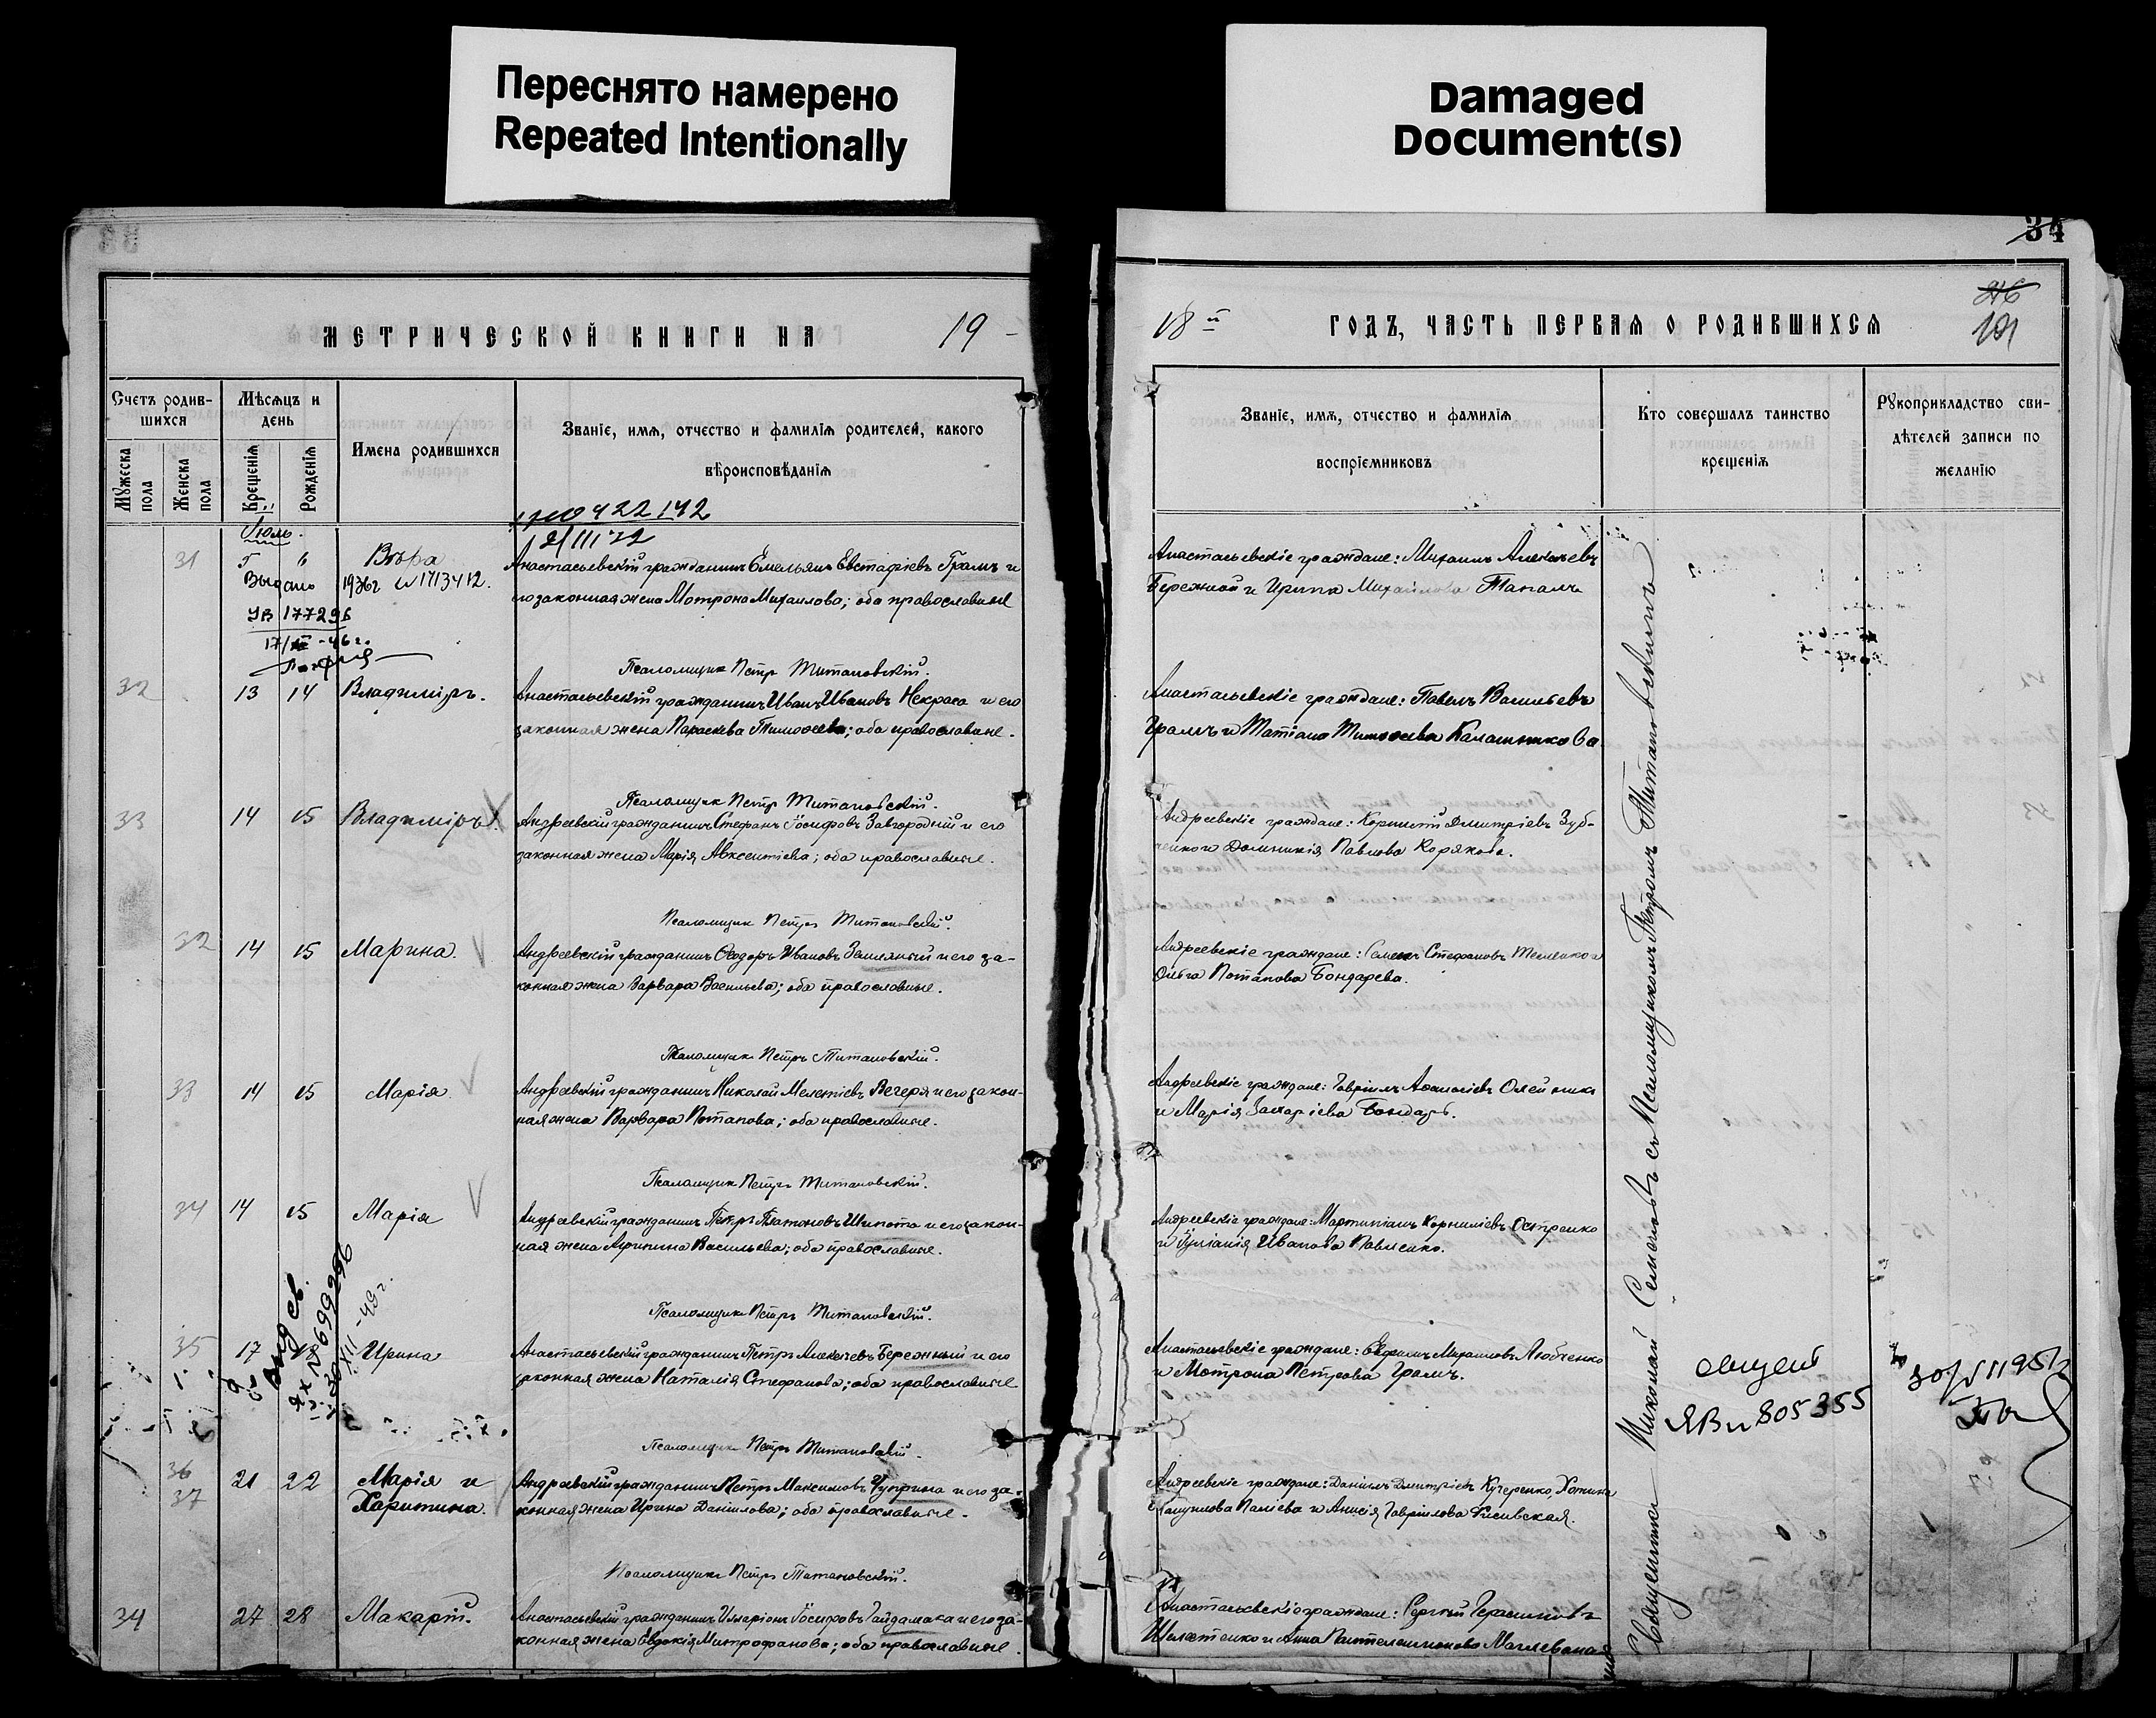 Переснято намерено
Repeated Intentionally
Damaged
Document(s)
34
МЕТРИЧЕСКОЙ КНИГИ НА 19
18й ГОДЪ, ЧАСТЬ ПЕРВАЯ О РОДИВШИХСЯ
216
Счетъ родив-
шихся
Мѣсяцъ и
день
Мужеска
пола
Женска
пола
Крещенія
Рожденія
Имена родившихся
Званіе, имя, отчество и фамилія родителей, какого
вѣроисповѣданія
Званіе, имя, отчество и фамилія
воспріемниковъ
Кто совершалъ таинство
крещенія
Рукоприкладство сви-
дѣтелей записи по
желанію
422142
Іюль.
31 Вѣра Анастасьевскій гражданинъ Емельянъ Евстафіевъ Грамъ и
его законная жена Мотрона Михаилова; оба православные
Выдано 1936г N 1713412.
ЯВ 177296
Анастасьевскіе граждане: Михаилъ Алексѣевъ
Бережной и Ирина Михайлова
Псаломщикъ Петръ Титановскій.
32 13 14 Владиміръ. Анастасьевскій гражданинъ Иванъ Ивановъ Некраса и его
законная жена Параскева Тимоѳеева; оба православные.
Анастасьевскіе граждане: Павелъ Васильевъ
Грамъ и Татіана Тимоѳеева Калашникова
Псаломщикъ Петръ Титановскій.
33 14 15 Владиміръ. Андреевскій гражданинъ Стефанъ Іосифовъ Завгородній и его
законная жена Марія Авксентіева; оба православные.
Андреевскіе граждане: Корнилій Дмитріевъ Зуб-
Домникія Павлова Корякова.
Псаломщикъ Петръ Титановскій.
32 14 15 Марина. Андреевскій гражданинъ Ѳеодоръ Ивановъ Земляный и его за-
конная жена Варвара Васильева; оба православные.
Андреевскіе граждане: Семенъ Стефановъ
Ольга Потапова Бондарева.
Псаломщикъ Петръ Титановскій.
33 14 15 Марія. Андреевскій гражданинъ Николай Мелетіевъ Вечеря и его закон-
ная жена Варвара Потапова; оба православные.
Андреевскіе граждане: Гавріилъ Аѳанасіевъ Олейникъ
и Марія Захаріева Бондарь.
Псаломщикъ Петръ Титановскій.
34 14 15 Марія Андреевскій гражданинъ Петръ Платоновъ Шипота и его закон-
ная жена Агрипина Васильева; оба православные.
Андреевскіе граждане: Мартиніанъ Корниліевъ Остренко
и Іуліанія Иванова Павленко.
Псаломщикъ Петръ Титановскій.
35 17 Ирина Анастасьевскій гражданинъ Петръ Алексѣевъ Бережный и его
законная жена Наталія Стефанова; оба православные
Анастасьевскіе граждане: Евфимъ Михаиловъ Любченко
и Мотрона Петрова Грамъ.
ЯВ N 805355
Псаломщикъ Петръ Титановскій.
36
37
21 22 Марія и
Харитина.
Андреевскій гражданинъ Петръ Максимовъ Чуприна и его за-
конная жена Ирина Даніилова; оба православные.
Андреевскіе граждане: Даніилъ Дмитріевъ Кучеренко,
Паліева и Анисія Гавріилова
Псаломщикъ Петръ Титановскій.
34 27 28 Макарій. Анастасьевскій гражданинъ Илларіонъ Іосифовъ Гайдамака и его за-
конная жена Евдокія Митрофанова; оба православные.
Анастасьевскіе граждане: Сергѣй Герасимовъ
и Анна Пантелеимонова
Священникъ Николай съ Псаломщикомъ Петромъ Титановскимъ